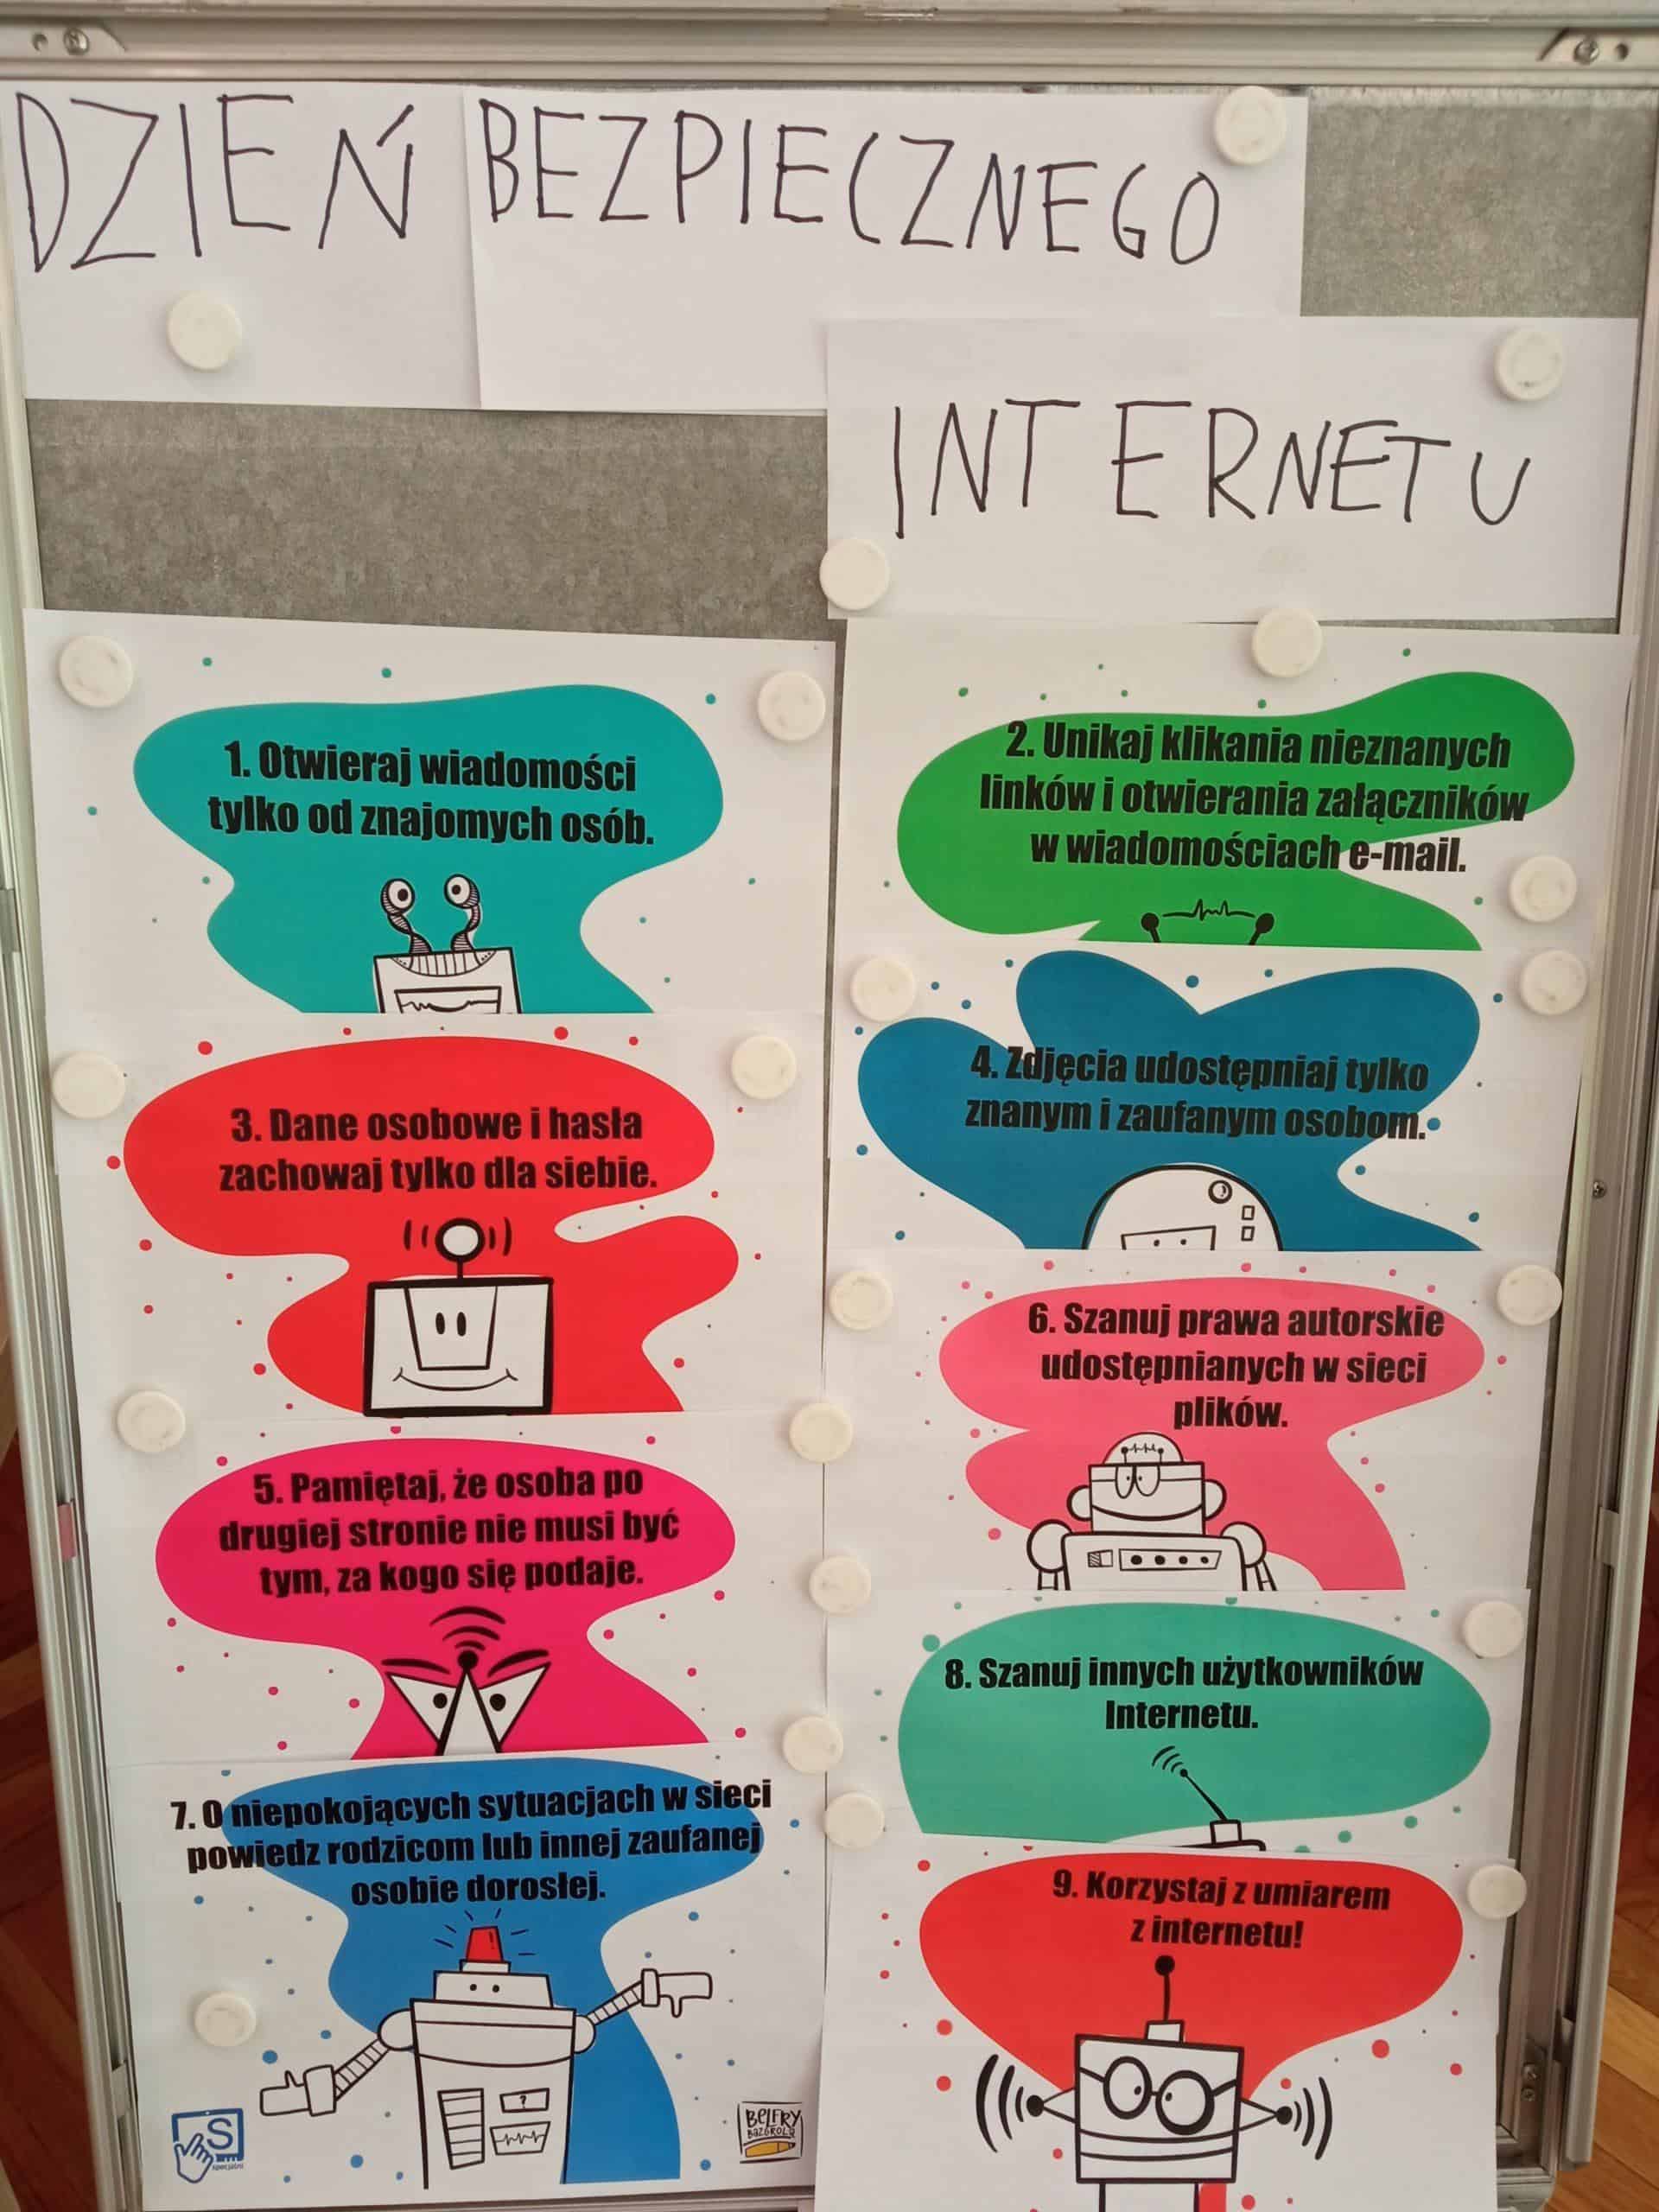 DZIEŃ BEZPIECZNEGO
INTERNETU
1. Otwieraj wiadomości
tylko od znajomych osób.
2. Unikaj klikania nieznanych
linków i otwierania załączników
w wiadomościach e-mail.
3. Dane osobowe i hasła
zachowaj tylko dla siebie.
4. Zdjęcia udostępniaj tylko
znanym i zaufanym osobom.
5. Pamiętaj, że osoba po
drugiej stronie nie musi być
tym, za kogo się podaje.
6. Szanuj prawa autorskie
udostępnianych w sieci
plików.
7. O niepokojących sytuacjach w sieci
powiedz rodzicom lub innej zaufanej
osobie dorosłej.
8. Szanuj innych użytkowników
Internetu.
9. Korzystaj z umiarem
z internetu!
?
S
specjalni
BELFRY
BAZGROLĄ